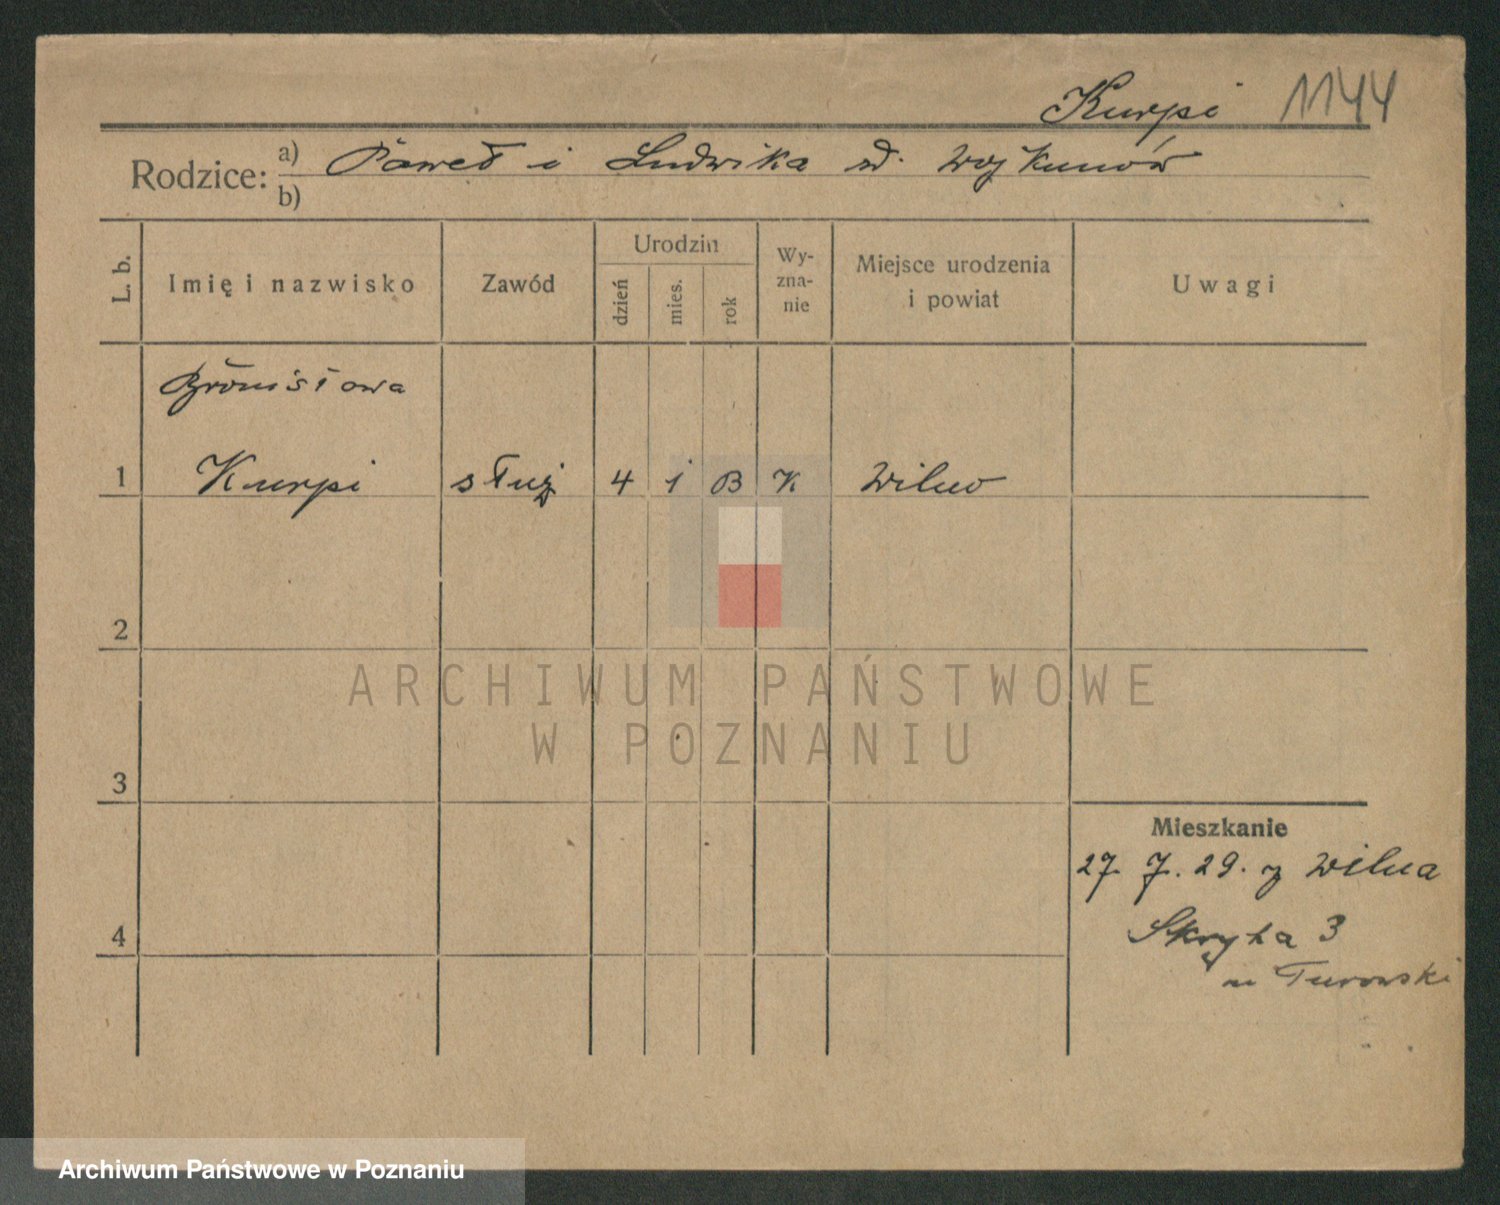 Kurpi 1144
Rodzice: a) Paweł i Ludwika
b)
L. b.
Imię i nazwisko
Zawód
Urodzin
dzień
mies.
rok
Wy-
zna-
nie
Miejsce urodzenia
i powiat
Uwagi
Bronisława
1 Kurpi służ 4 1 K Wilno
2
3
4
Mieszkanie
27. 7. 29. z Wilna
3
Turowski
ARCHIWUM PAŃSTWOWE
W POZNANIU
Archiwum Państwowe w Poznaniu